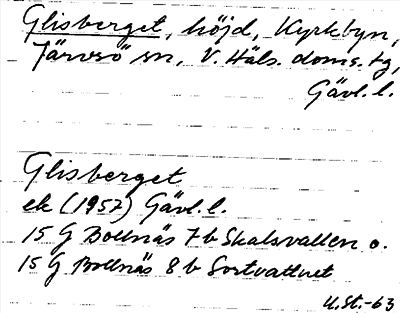 Glisberget, höjd, Kyrkbyn,
Järvsö sn, V. Häls. doms. tg,
Gävl. l.
Glisberget
ek (1957) Gävl. l.
15 G Bollnäs 7 b Skalsvallen o.
15 G Bollnäs 8 b Sortvattnet
U.St.-63